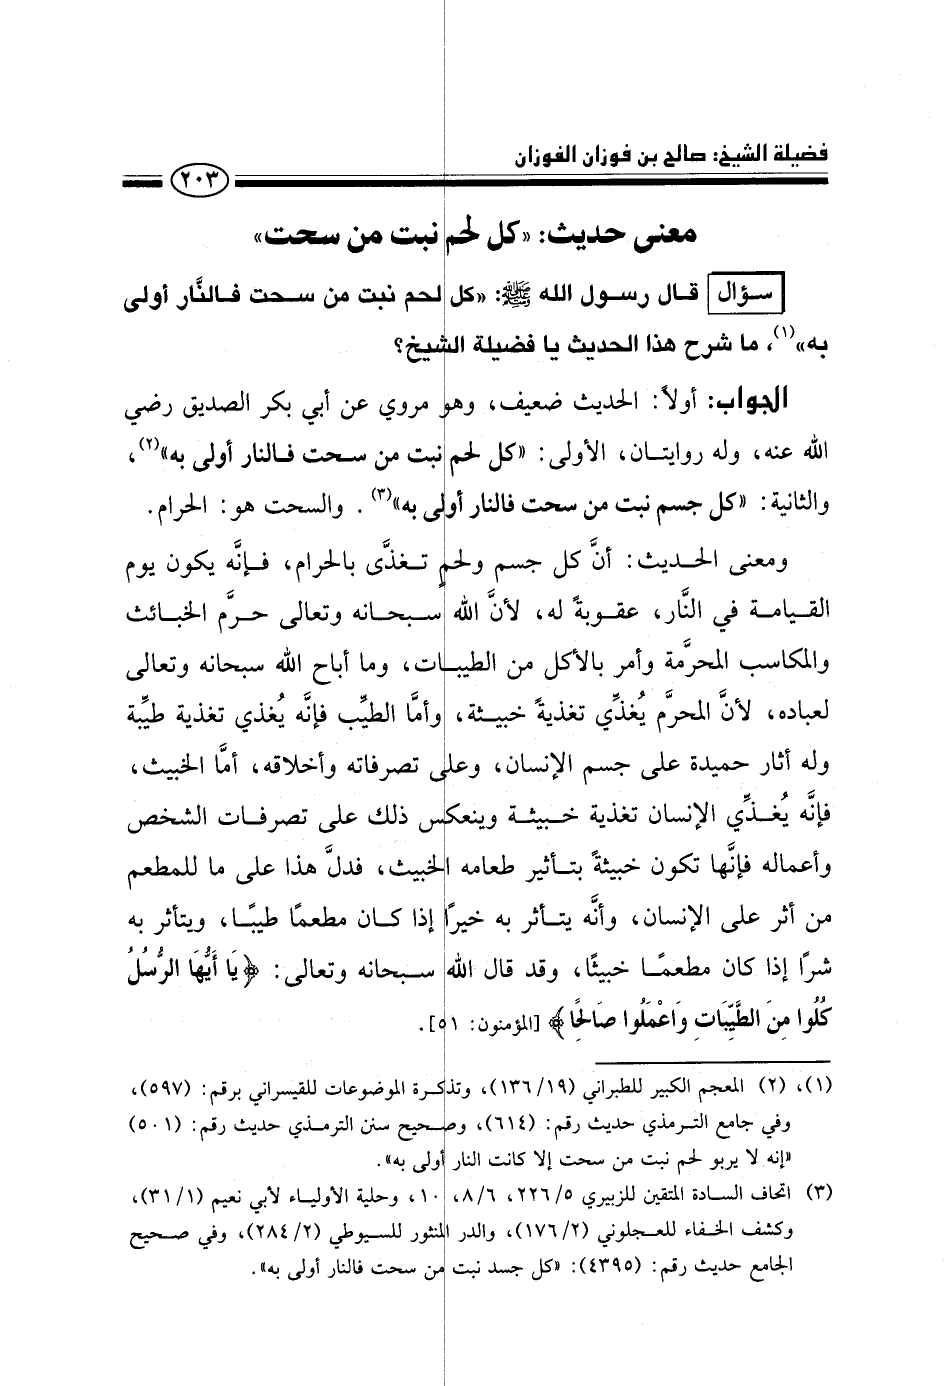 فضيلة الشيخ: صالح بن فوزان الفوزان
٢٠٣
معنى حديث: «كل لحم نبت من سحت»
سؤال قال رسول الله ﷺ: «كل لحم نبت من سحت فالنَّار أولى
به»(١)، ما شرح هذا الحديث يا فضيلة الشيخ؟
الجواب: أولاً: الحديث ضعيف، وهو مروي عن أبي بكر الصديق رضي
الله عنه، وله روايتان، الأولى: «كل لحم نبت من سحت فالنار أولى به»(٢)،
والثانية: «كل جسم نبت من سحت فالنار أولى به»(٣). والسحت هو: الحرام.
ومعنى الحديث: أنَّ كل جسم ولحم تغذَّى بالحرام، فإنَّه يكون يوم
القيامة في النَّار، عقوبةً له، لأنَّ الله سبحانه وتعالى حرَّم الخبائث
والمكاسب المحرَّمة وأمر بالأكل من الطيبات، وما أباح الله سبحانه وتعالى
لعباده، لأنَّ المحرَّم يُغذِّي تغذيةً خبيثة، وأمَّا الطيِّب فإنَّه يُغذي تغذية طيِّبة
وله أثار حميدة على جسم الإنسان، وعلى تصرفاته وأخلاقه، أمَّا الخبيث،
فإنَّه يُغذِّي الإنسان تغذية خبيثة وينعكس ذلك على تصرفات الشخص
وأعماله فإنَّها تكون خبيثةً بتأثير طعامه الخبيث، فدلَّ هذا على ما للمطعم
من أثر على الإنسان، وأنَّه يتأثر به خيرًا إذا كان مطعمًا طيبًا، ويتأثر به
شرًا إذا كان مطعمًا خبيثًا، وقد قال الله سبحانه وتعالى: ﴿يَا أَيُّهَا الرُّسُلُ
كُلُوا مِنَ الطَّيِّبَاتِ وَاعْمَلُوا صَالِحًا﴾ [المؤمنون: ٥١].
(١)، (٢) المعجم الكبير للطبراني (١٣٦/١٩)، وتذكرة الموضوعات للقيسراني برقم: (٥٩٧)،
وفي جامع الترمذي حديث رقم: (٦١٤)، وصحيح سنن الترمذي حديث رقم: (٥٠١)
«إنه لا يربو لحم نبت من سحت إلا كانت النار أولى به».
(٣) اتحاف السادة المتقين للزبيري ٢٢٦/٥، ٨/٦، ١٠، وحلية الأولياء لأبي نعيم (٣١/١)،
وكشف الخفاء للعجلوني (١٧٦/٢)، والدر المنثور للسيوطي (٢٨٤/٢)، وفي صحيح
الجامع حديث رقم: (٤٣٩٥): «كل جسد نبت من سحت فالنار أولى به».